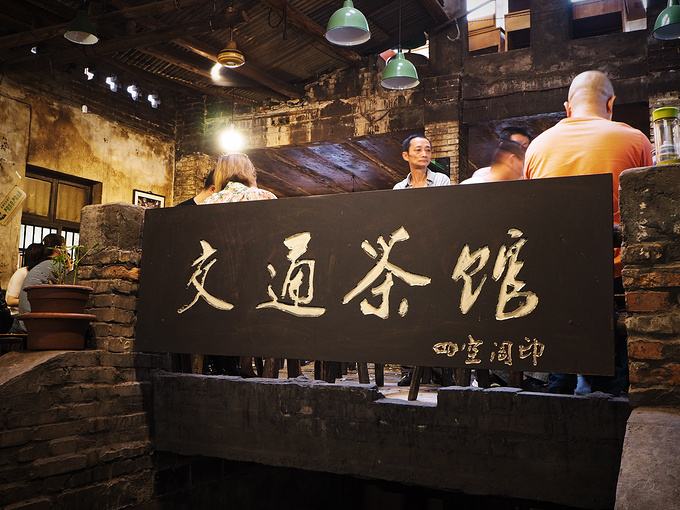 交通茶馆
四空阁印